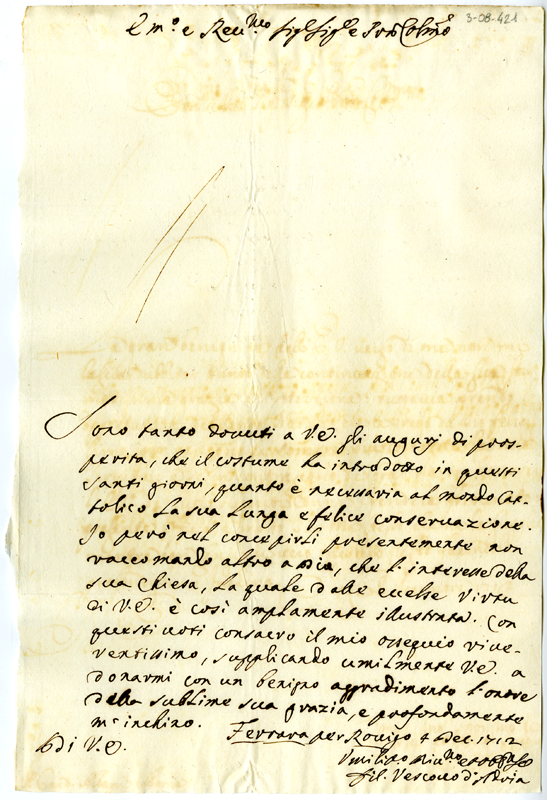 3-08-421
Em.º e Rev.mo Sig.r Sig.r e Pron Colmo
Sono tanto dovuti a V.E. gli augurj di pros-
perità, che il costume ha introdotto in questi
santi giorni, quanto è necessaria al mondo Cat-
tolico la sua lunga e felice conservazione.
Io però nel concepirli presentemente non
raccomando altro a Dio, che l'interesse della
sua Chiesa, la quale dalle eccelse virtù
di V.E. è così amplamente illustrata. Con
questi voti consacro il mio ossequio rive-
rentissimo, supplicando umilmente V.E. a
donarmi con un benigno aggradimento l'onore
della sublime sua grazia, e profondamente
m'inchino.
Ferrara per Rovigo 4 Dec. 1712
di V.E.
Umiliss.o Div.mo
Fil. Vescovo d'Adria